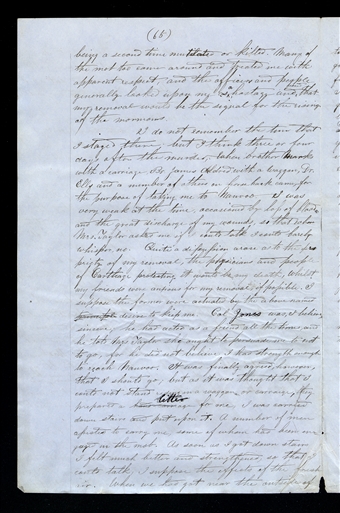 (65)
being a second time mutilated or killed. Many of
the mob too came around and treated me with
apparent respect and the officers and people
generally looked upon me as a hostage and that
my removal would be the signal for the rising
of the mormons.
I do not remember the time that
I staged there but I think three or four
days after the murder, when brother Marks
with a carriage Br James Allred with a waggon, Dr
Ells and a number of others on horseback came for
the purpose of taking me to Nauvoo. I was
very weak at the time occasioned by loss of blood
and the great discharge of my wounds, so that when
Mrs Taylor asked me if I could talk I could barely
whisper no. Quite a discussion arose as to the pro
priety of my removal, the physicians and people
of Carthage protesting it would be my death, whilst
my friends were anxious for my removal if possible. I
suppose the former were actuated by the above named
desire to keep me. Col Jones was, I believe
sincere, he has acted as a friend all the time and
he told Mrs Taylor she ought to persuade me not
to go, for he did not believe I had strength enough
to reach Nauvoo. It was finally agreed, however,
that I should go, but as it was thought that I
could not stand a waggon or carriage, they
prepared a litter for me, I was carried
down stairs and put upon it. A number of men
assisted to carry me some of whom had been en
gaged in the mob. As soon as I got down stairs
I felt much better and strengthened, so that I
could talk, I suppose the effects of the fresh
air. When we had got near the outside of